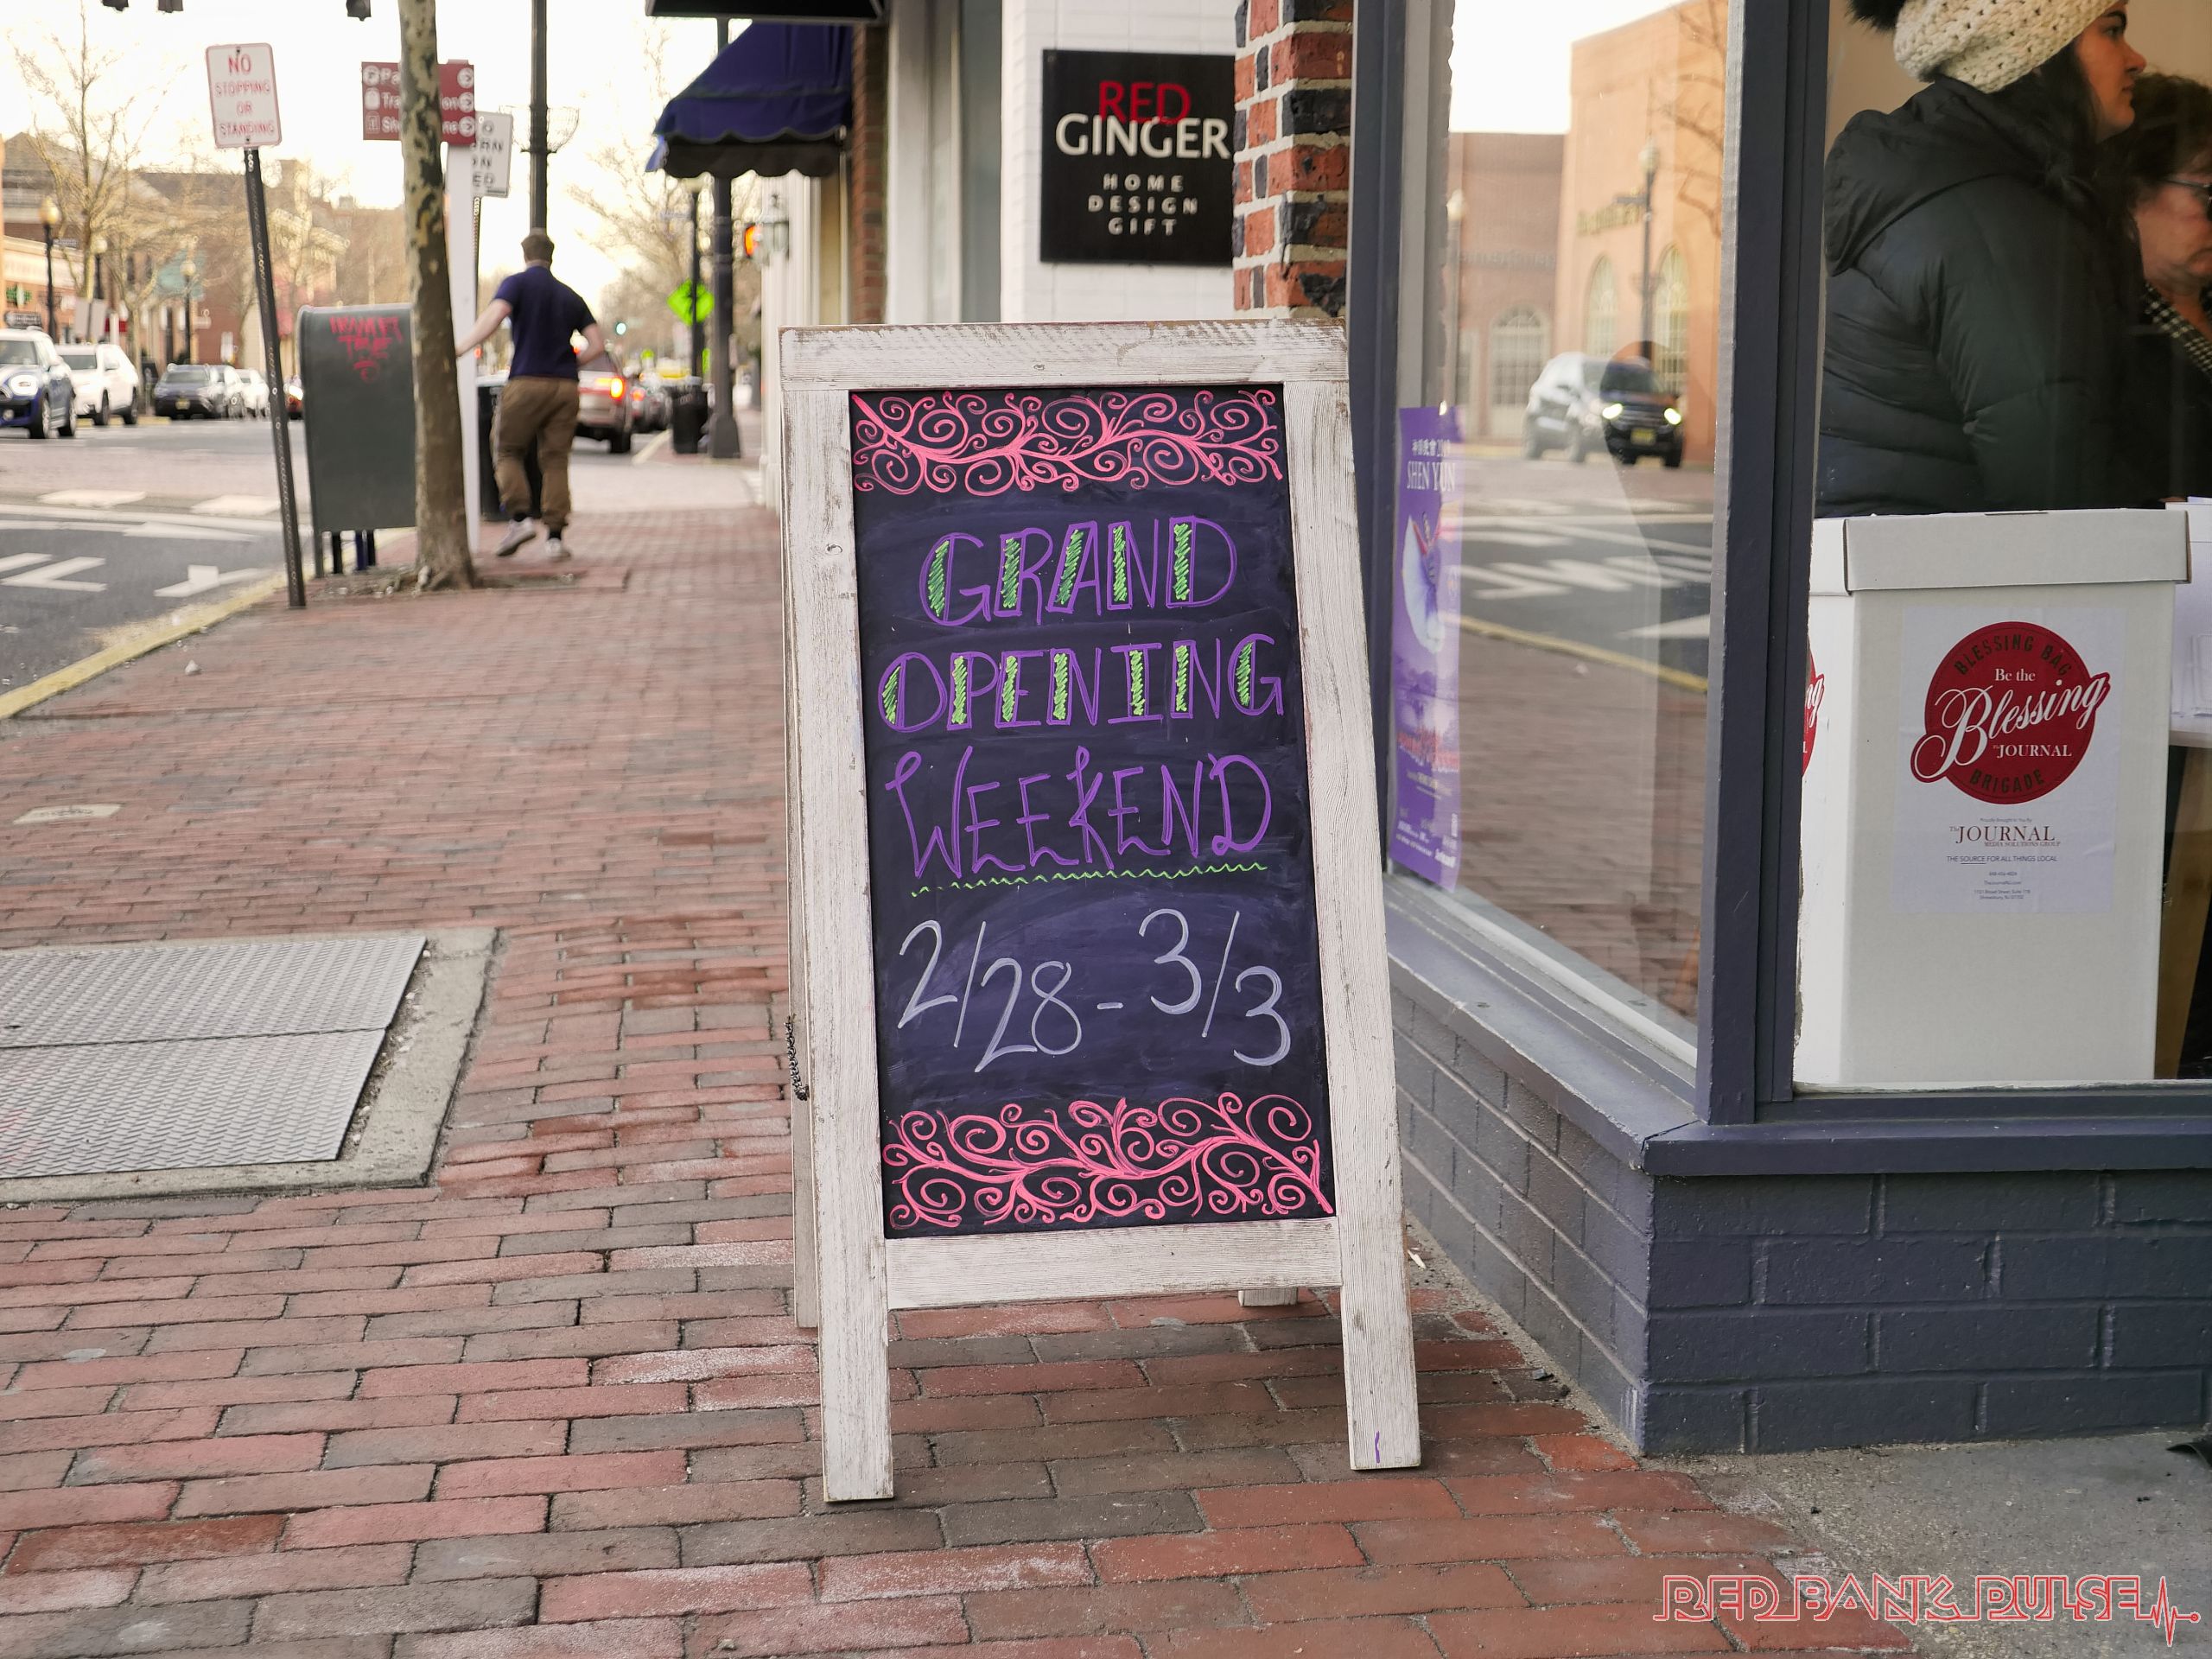 NO
STOPPING
OR
STANDING
RED
GINGER
HOME
DESIGN
GIFT
GRAND
OPENING
WEEKEND
2/28 - 3/3
SHEN YUN
BLESSING BAG
Be the
Blessing
The JOURNAL
BRIGADE
The JOURNAL
MEDIA SOLUTIONS GROUP
THE SOURCE FOR ALL THINGS LOCAL
RED BANK PULSE